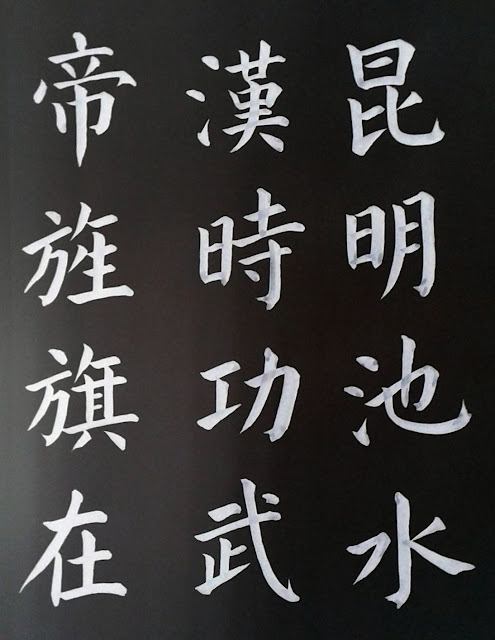 昆明池水
漢時功武
帝旌旗在